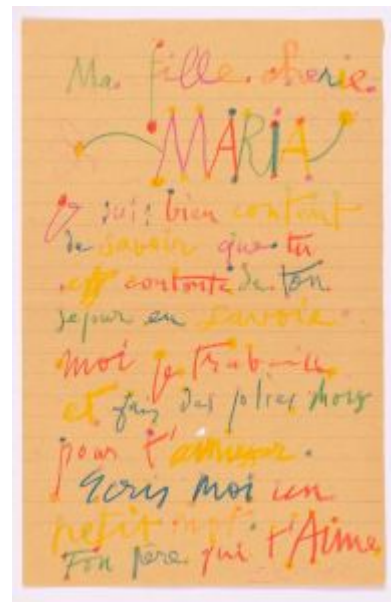 Ma. fille. cherie.
MARIA
Je suis bien content
de savoir que tu
est contente de ton
sejour en Savoie.
moi je travaille
et fais des jolies
pour t'amuser.
Ecris moi un
petit mot.
Ton père qui t'Aime